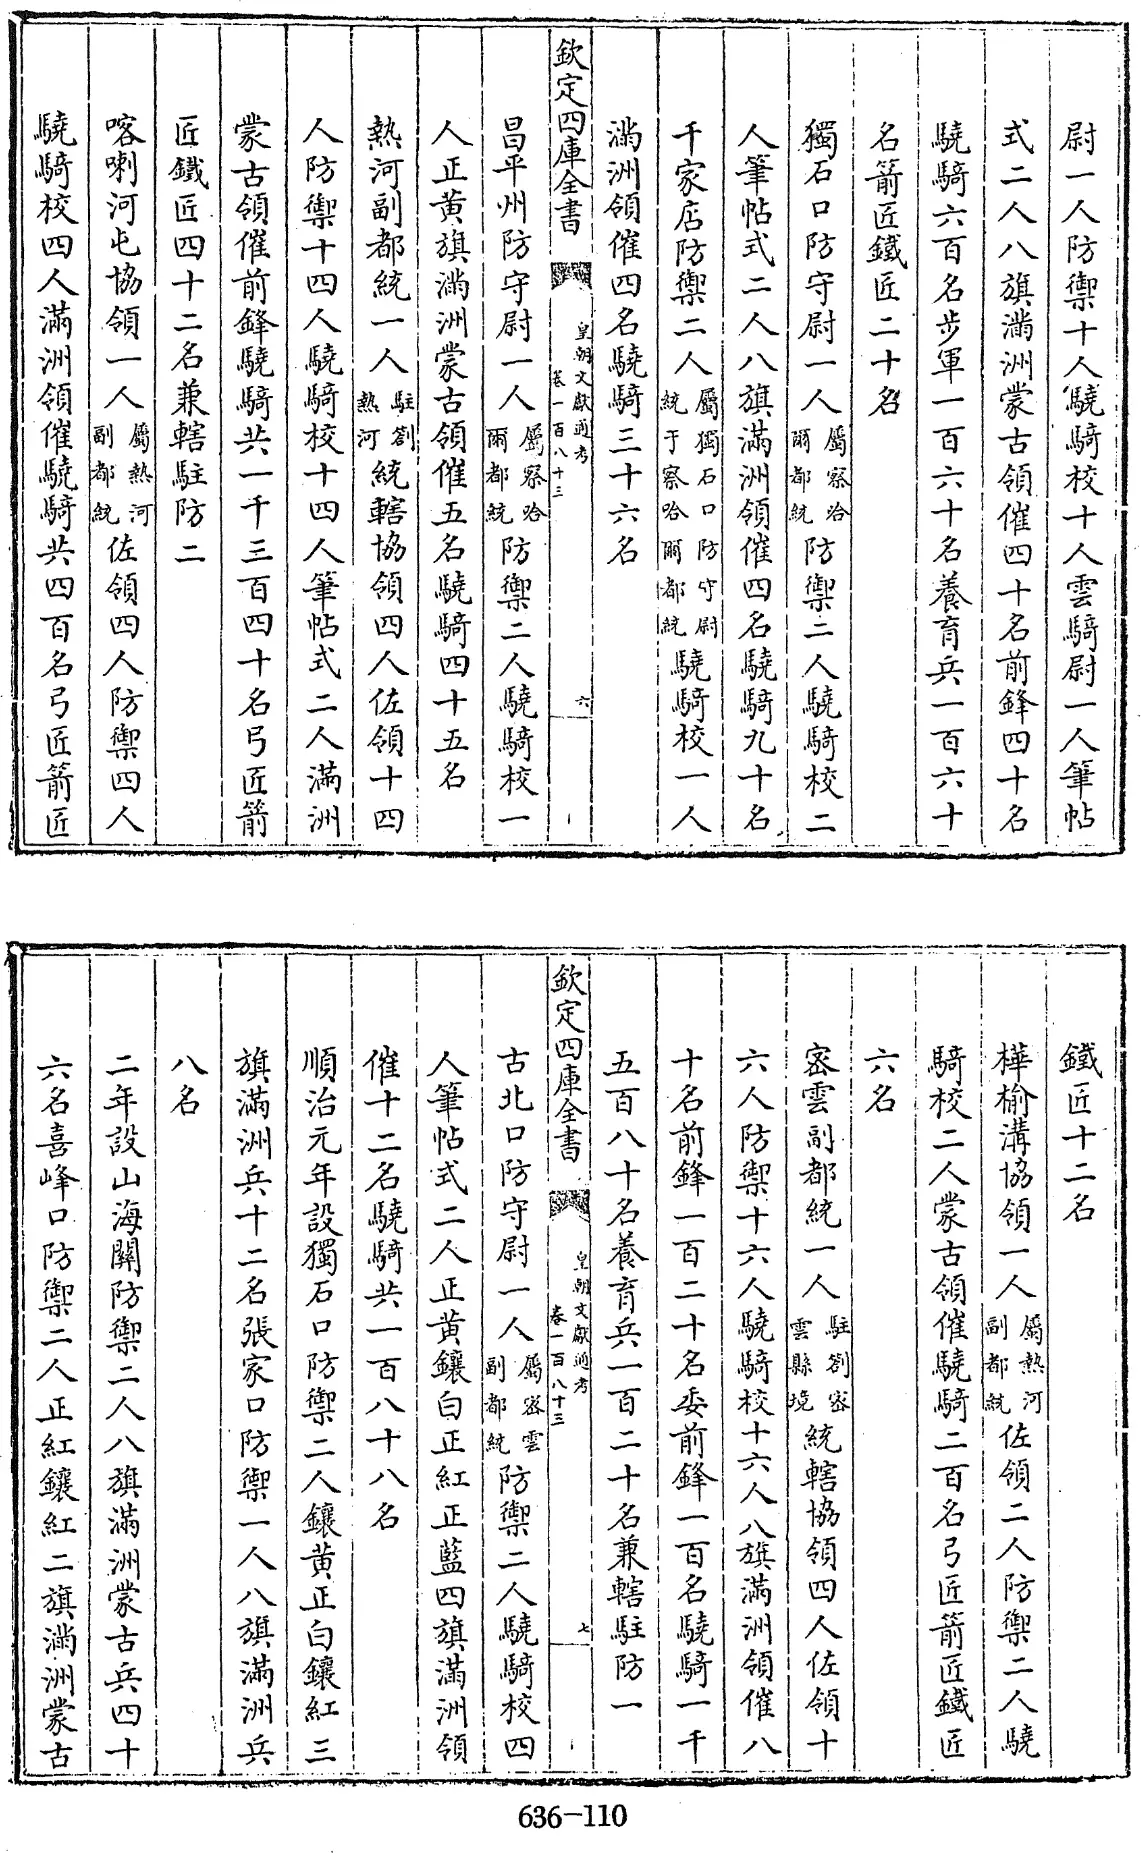 尉一人防禦十人驍騎校十人雲騎尉一人筆帖
式二人八旗滿洲蒙古領催四十名前鋒四十名
驍騎六百名步軍一百六十名養育兵一百六十
名箭匠鐵匠二十名
獨石口防守尉一人屬察哈爾都統防禦二人驍騎校二
人筆帖式二人八旗滿洲領催四名驍騎九十名
千家店防禦二人屬獨石口防守尉統于察哈爾都統驍騎校一人
滿洲領催四名驍騎三十六名
欽定四庫全書
皇朝文獻通考
卷一百八十三
六
昌平州防守尉一人屬察哈爾都統防禦二人驍騎校一
人正黃旗滿洲蒙古領催五名驍騎四十五名
熱河副都統一人駐劄熱河統轄協領四人佐領十四
人防禦十四人驍騎校十四人筆帖式二人滿洲
蒙古領催前鋒驍騎共一千三百四十名弓匠箭
匠鐵匠四十二名兼轄駐防二
喀喇河屯協領一人屬熱河副都統佐領四人防禦四人
驍騎校四人滿洲領催驍騎共四百名弓匠箭匠
鐵匠十二名
樺榆溝協領一人屬熱河副都統佐領二人防禦二人驍
騎校二人蒙古領催驍騎二百名弓匠箭匠鐵匠
六名
密雲副都統一人駐劄密雲縣境統轄協領四人佐領十
六人防禦十六人驍騎校十六人八旗滿洲領催八
十名前鋒一百二十名委前鋒一百名驍騎一千
五百八十名養育兵一百二十名兼轄駐防一
欽定四庫全書
皇朝文獻通考
卷一百八十三
七
古北口防守尉一人屬密雲副都統防禦二人驍騎校四
人筆帖式二人正黃鑲白正紅正藍四旗滿洲領
催十二名驍騎共一百八十八名
順治元年設獨石口防禦二人鑲黃正白鑲紅三
旗滿洲兵十二名張家口防禦一人八旗滿洲兵
八名
二年設山海關防禦二人八旗滿洲蒙古兵四十
六名喜峰口防禦二人正紅鑲紅二旗滿洲蒙古
636-110